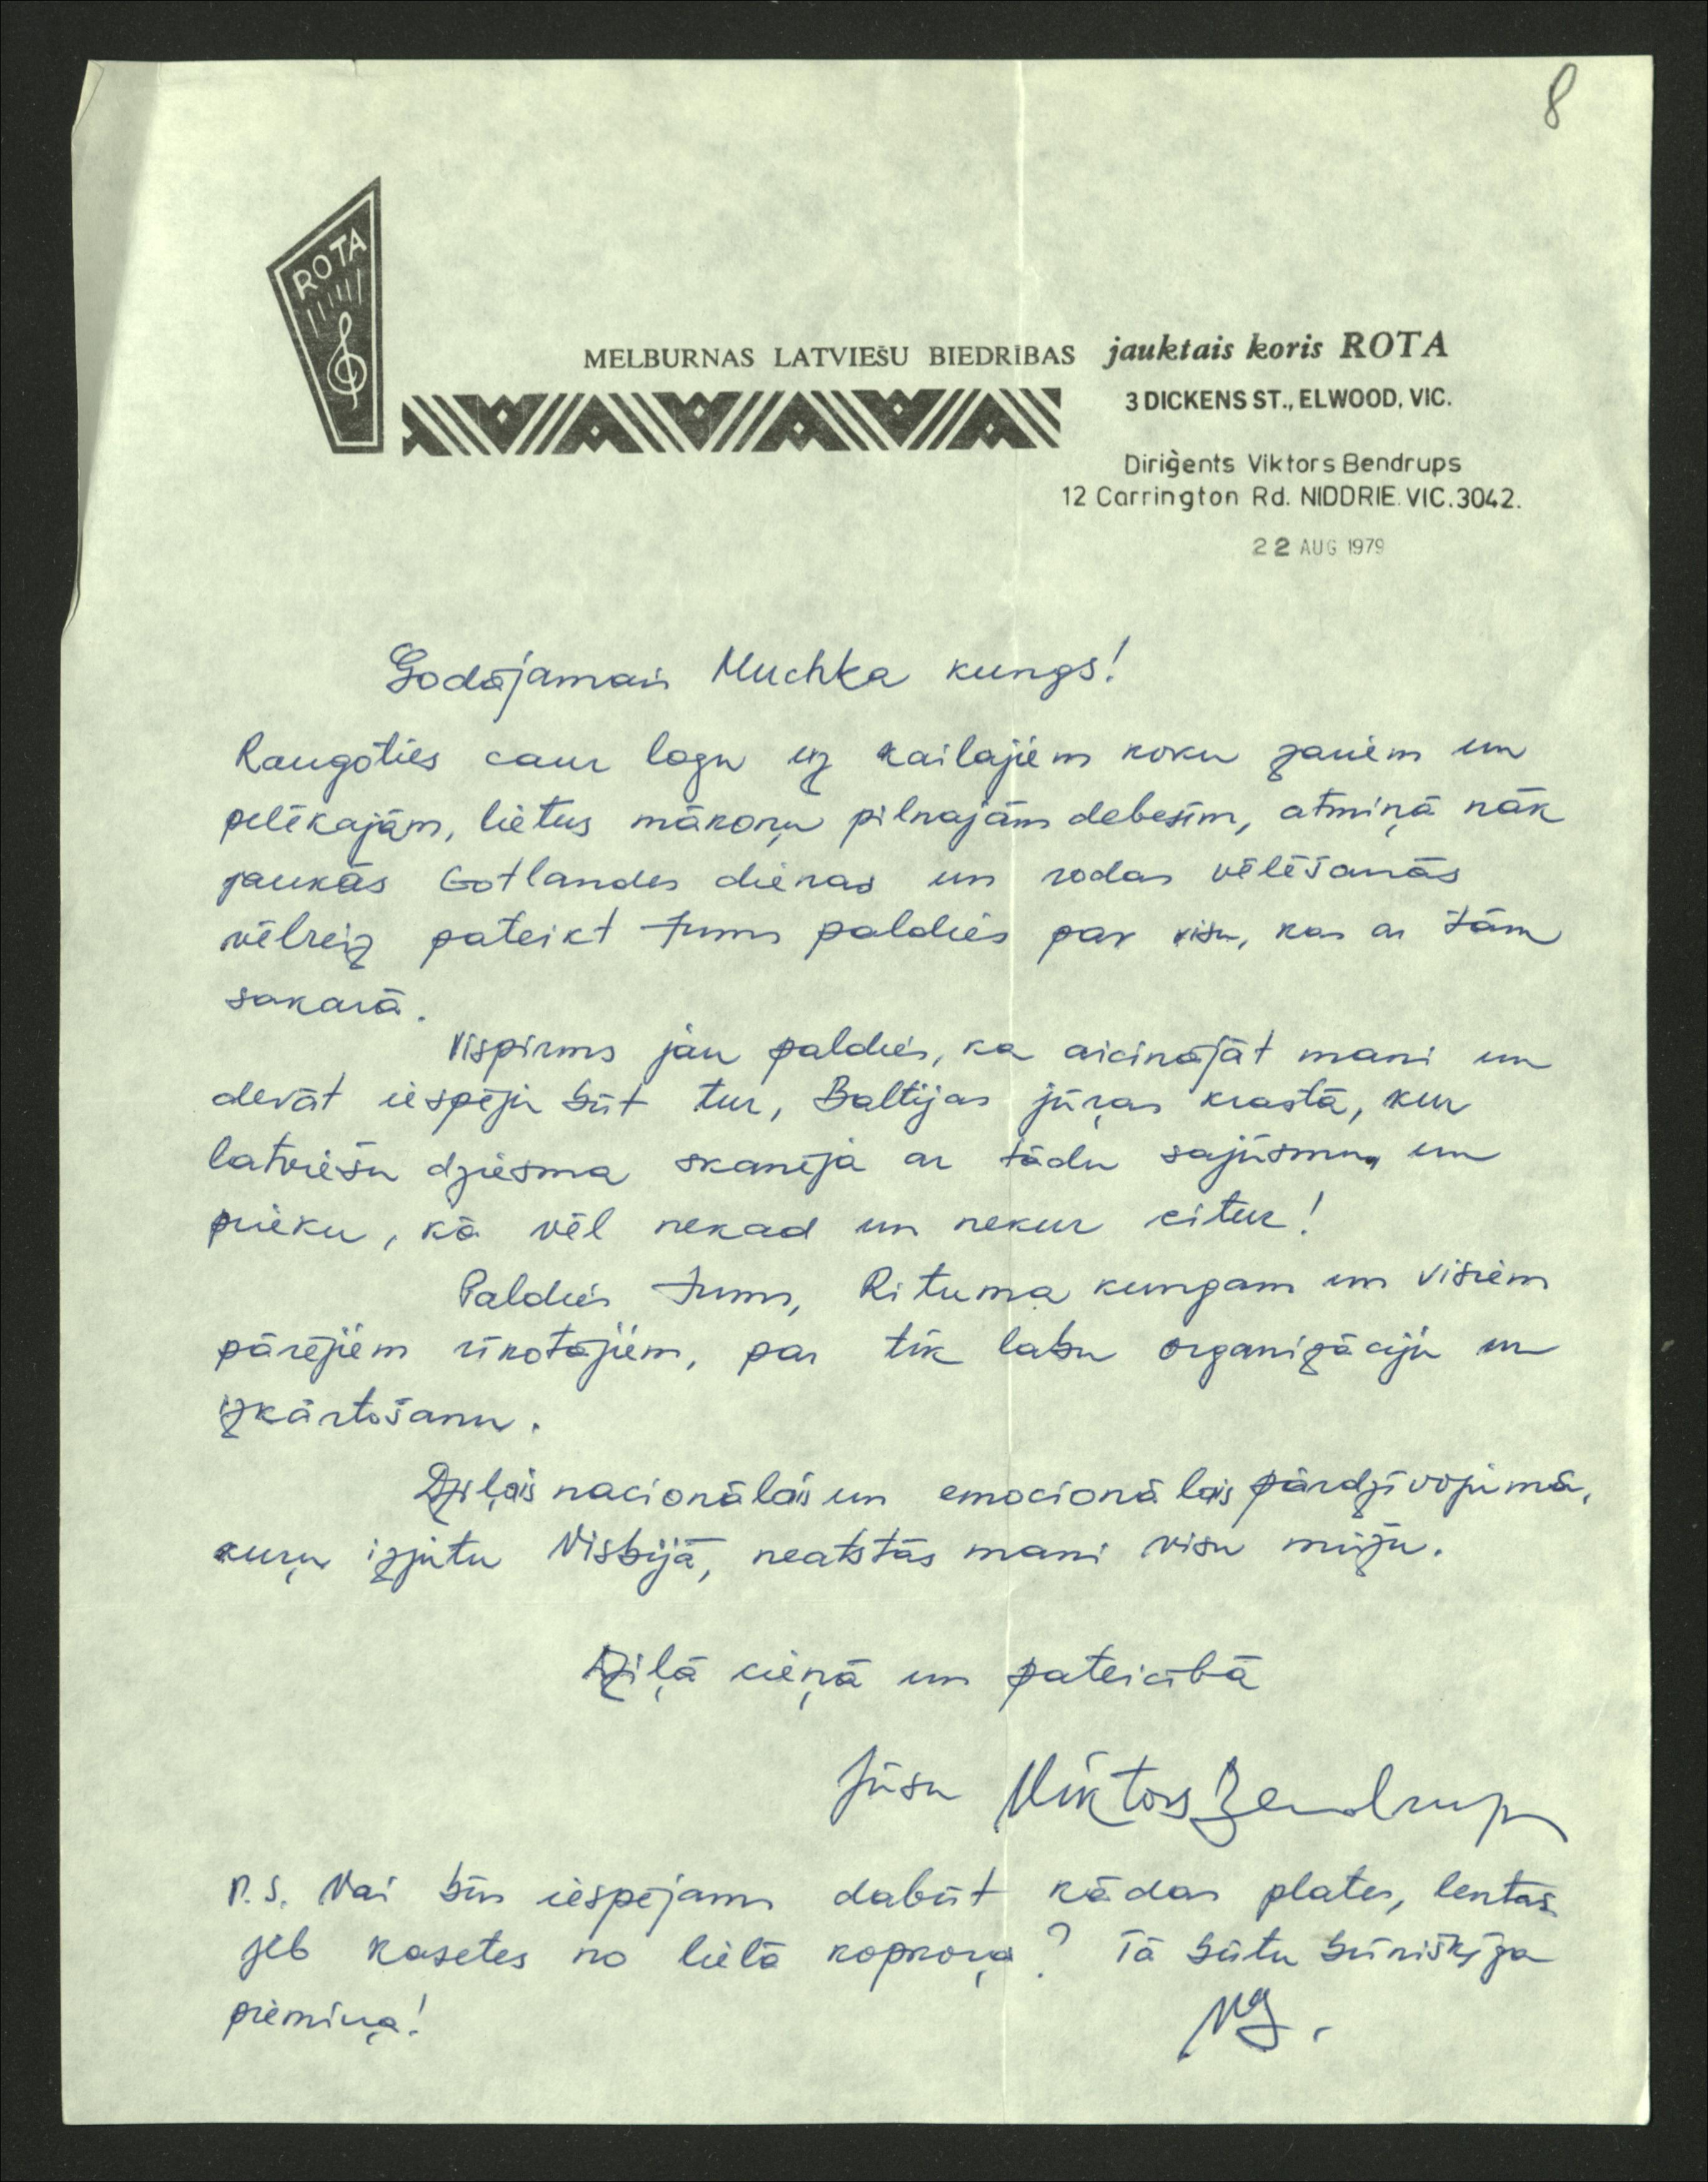 8
ROTA
MELBURNAS LATVIEŠU BIEDRĪBAS jauktais koris ROTA
3 DICKENS ST., ELWOOD, VIC.
Diriģents Viktors Bendrups
12 Carrington Rd. NIDDRIE. VIC. 3042.
22 AUG 1979
Godājamais Muchka kungs!
Raugoties caur logu uz kailajiem koku zariem un
pelēkajām, lietus mākoņu pilnajām debesīm, atmiņā nāk
jaukās Gotlandes dienas un rodas vēlēšanās
vēlreiz pateikt Jums paldies par visu, kas ar tām
sakarā.
Vispirms jau paldies, ka aicinājāt mani un
devāt iespēju būt tur, Baltijas jūŗas krastā, kur
latviešu dziesma skanēja ar tādu sajūsmu un
prieku, kā vēl nekad un nekur citur!
Paldies Jums, Rituma kungam un visiem
pārējiem rīkotājiem, par tik labu organizāciju un
izkārtošanu.
Dziļais nacionālais un emocionālais pārdzīvojums,
kuŗu izjutu Visbijā, neatstās mani visu mūžu.
Dziļā cieņā un pateicībā
Jūsu Viktors Bendrups
P.S. Vai būs iespējams dabūt kādas plates, lentas
jeb kasetes no lielā kopkoŗa? Tā būtu brīnišķīga
piemiņa!
VB.